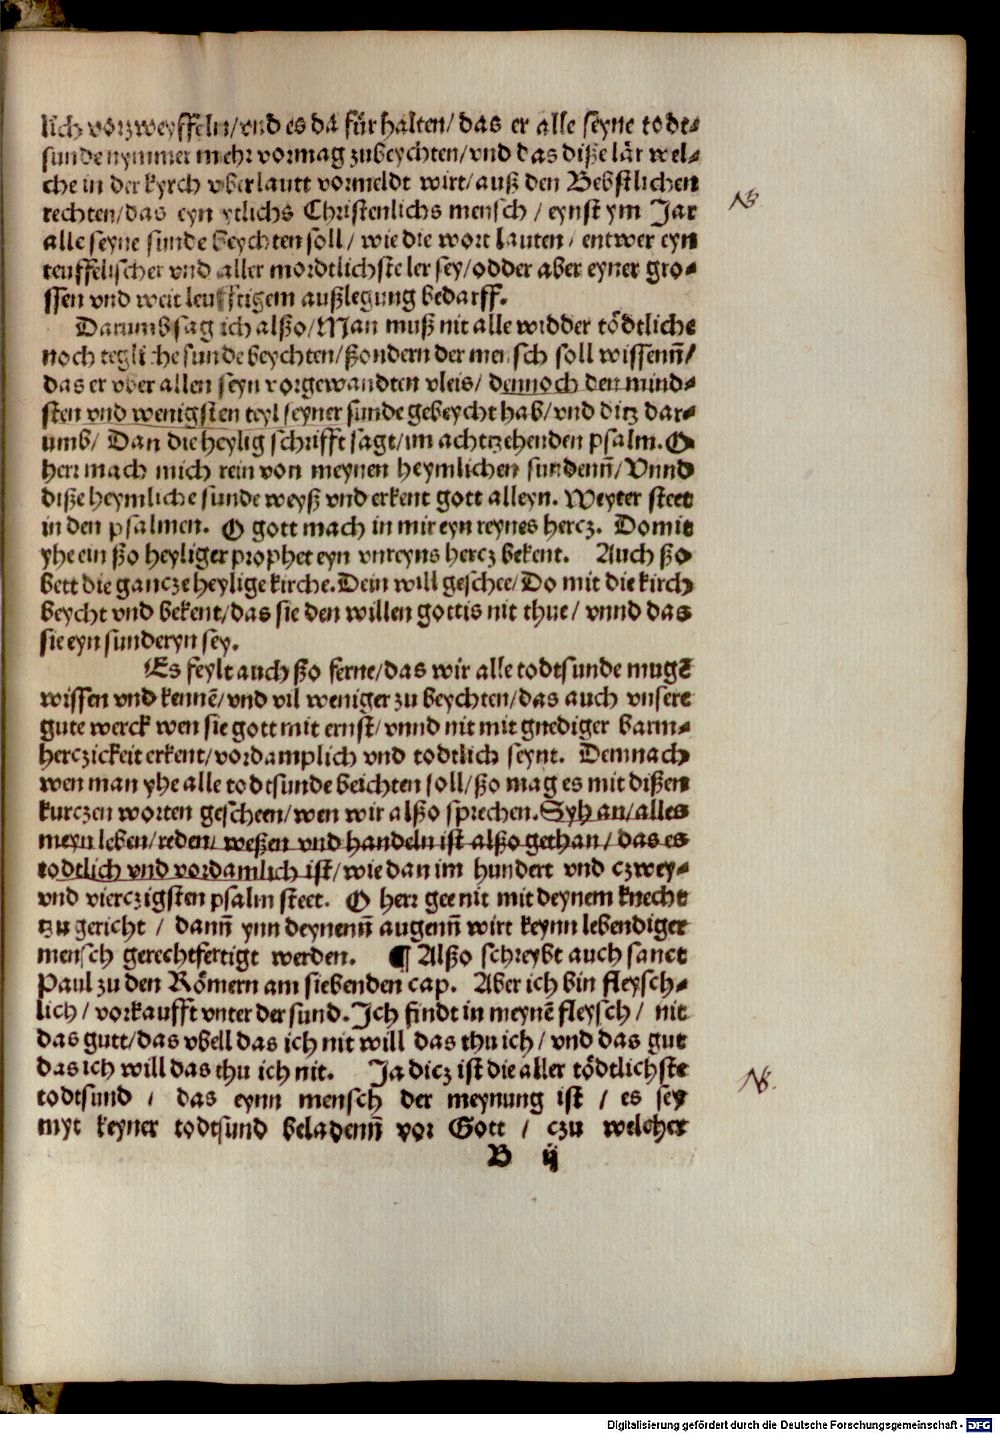 lich vorzweyffeln/vnd es da für halten/das er alle seyne todt⸗
sunde nymmer mehr vormag zubeychten/vnd das diße lär wel⸗
che in der kyrch vberlautt vormeldt wirt/auß den Bebstlichen
rechten/das eyn ytlichs Christenlichs mensch / eynst ym Jar
alle seyne sunde beychten soll/ wie die wort lauten/ entwer eyn
teuffelischer vnd aller mordtlichste ler sey/odder aber eyner gro⸗
ssen vnd weit leufftigem außlegung bedarff.
Darumb sag ich alßo/Man muß nit alle widder tödtliche
noch tegliche sunde beychten/ßondern der mensch soll wissenñ/
das er vber allen seyn vorgewandten vleis/ dennoch den mind⸗
sten vnd wenigsten teyl seyner sunde gebeycht hab/vnd ditz dar⸗
umb/ Dan die heylig schrifft sagt/im achtzehenden psalm. O
herr mach mich rein von meynen heymlichen sundenñ/Vnnd
diße heymliche sunde weyß vnd erkent gott alleyn. Weyter steet
in den psalmen. O gott mach in mir eyn reynes hercz. Domit
yhe ein ßo heyliger prophet eyn vnreyns hercz bekent. Auch ßo
bett die gancze heylige kirche. Dein will geschee/Do mit die kirch
beycht vnd bekent/das sie den willen gottis nit thue/ vnnd das
sie eyn sunderyn sey.
Es feylt auch ßo ferne/das wir alle todtsunde mugẽ
wissen vnd kennẽ/vnd vil weniger zu beychten/das auch vnsere
gute werck wen sie gott mit ernst/vnnd nit mit gnediger barm⸗
herczickeit erkent/vordamplich vnd todtlich seynt. Demnach
wen man yhe alle todtsunde beichten soll/ßo mag es mit dißen
kurczen worten gescheen/wen wir alßo sprechen. Syh an/alles
meyn leben/reden/weßen vnd handeln ist alßo gethan/das es
todtlich vnd vordamlich ist/wie dan im hundert vnd czwey⸗
vnd vierczigsten psalm steet. O herr gee nit mit deynem knecht
tzu gericht / danñ ynn deynenñ augenñ wirt keynn lebendiger
mensch gerechtfertigt werden. ¶ Alßo schreybt auch sanct
Paul zu den Römern am siebenden cap. Aber ich bin fleysch⸗
lich/ vorkaufft vnter der sund. Ich findt in meynẽ fleysch/ nit
das gutt/das vbell das ich nit will das thu ich/ vnd das gut
das ich will das thu ich nit. Ja dicz ist die aller tödtlichste
todtsund / das eynn mensch der meynung ist / es sey
myt keyner todtsund beladenñ vor Gott / czu welcher
B ij
NB
NB.
Digitalisierung gefördert durch die Deutsche Forschungsgemeinschaft - DFG